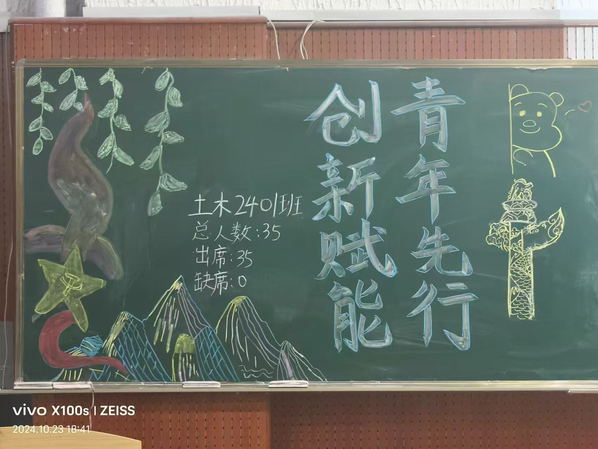 创新赋能
青年先行
土木2401班
总人数:35
出席:35
缺席:0
vivo X100s | ZEISS
2024.10.23 18:41